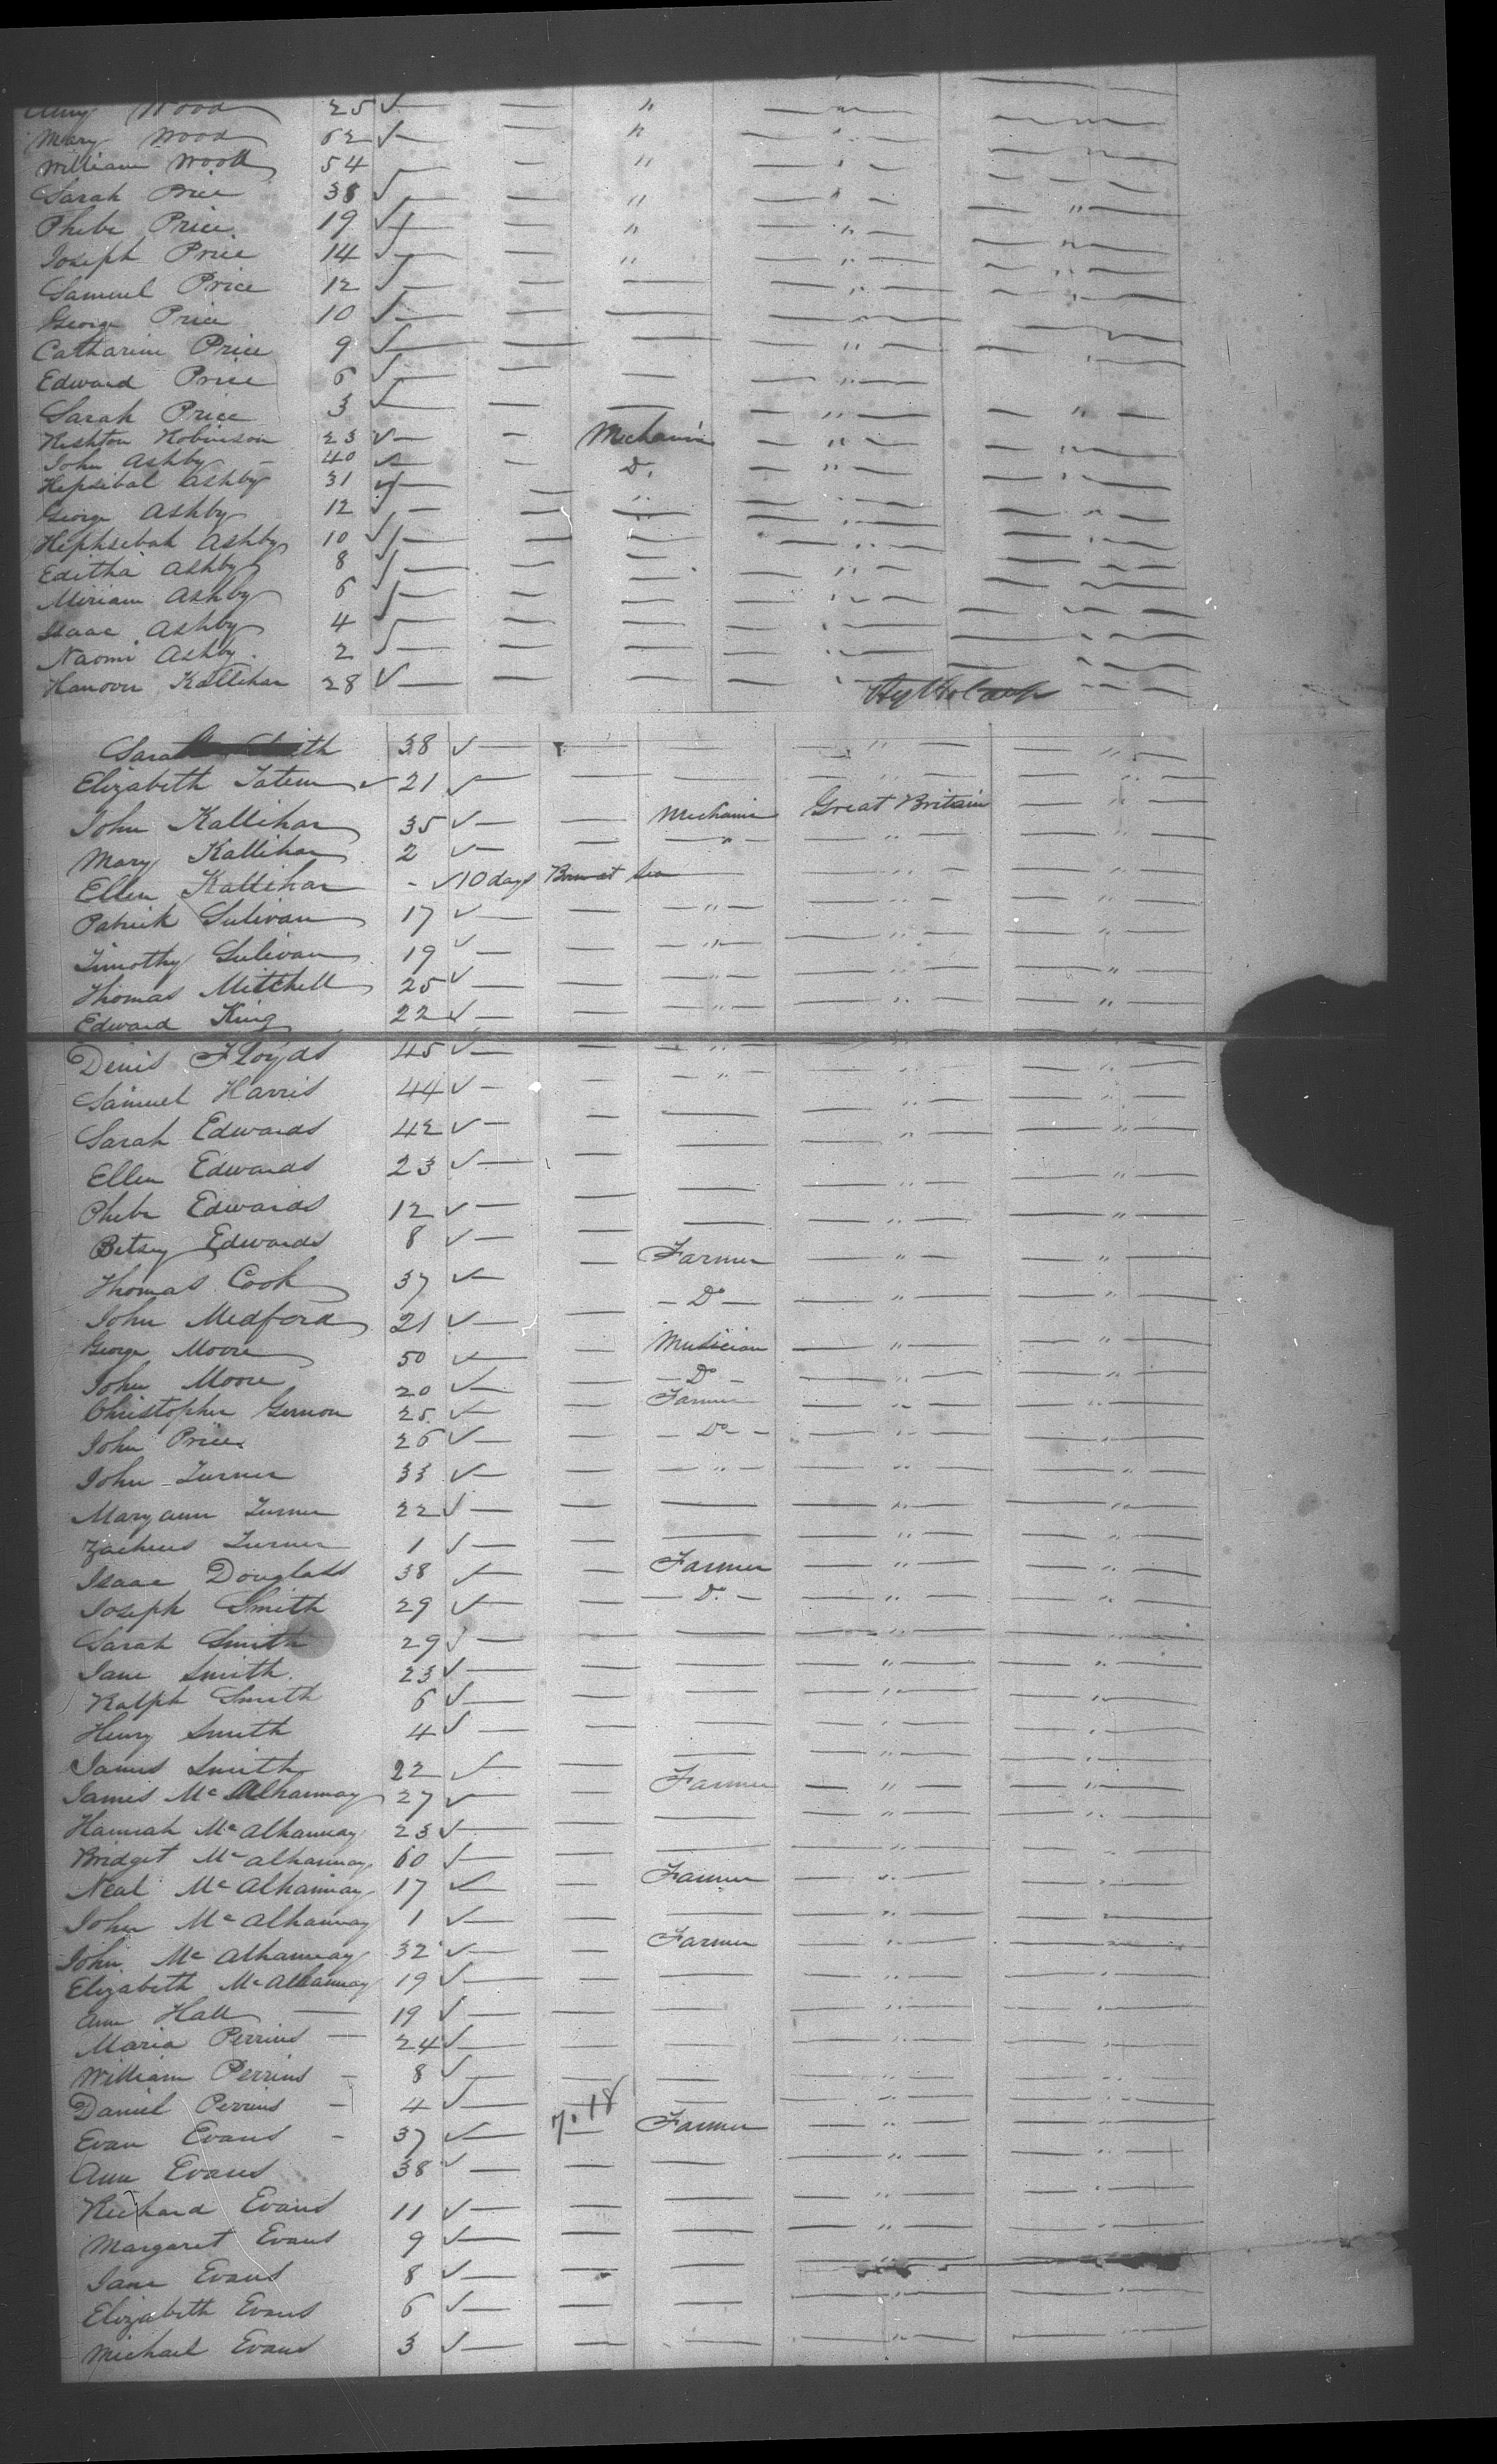 Wood 25 "
Mary Wood 62 "
William Wood 54 "
Sarah Price 38 "
Phebe Price 19 "
Joseph Price 14 "
Samuel Price 12 "
George Price 10 "
Catharine Price 9 "
Edward Price 6 "
Sarah Price 3 "
Rishton Robinson 23 Mechanic "
John Ashby 40 Do "
Hepsibal Ashby 31 "
George Ashby 12 "
Hephsebah Ashby 10 "
Editha Ashby 8 "
Miriam Ashby 6 "
Isaac Ashby 4 "
Naomi Ashby 2 "
Hanover Kallihan 28
Sarah Smith 38 "
Elizabeth Tatem 21 "
John Kallihan 35 Mechanic Great Britain "
Mary Kallihan 2 "
Ellen Kallihan - 10 days Born at Sea "
Patrick Sulivan 17 "
Timothy Sulivan 19 "
Thomas Mitchell 25 "
Edward King 22 "
Denis Floyds 45 "
Samuel Harris 44 "
Sarah Edwards 42 "
Ellen Edwards 23 "
Phebe Edwards 12 "
Betsey Edwards 8 "
Thomas Cook 37 Farmer "
John Medford 21 Do "
George Moore 50 Musician "
John Moore 20 Do "
Christopher Gernon 25 Farmer "
John Price 26 Do "
John Turner 33 "
Maryann Turner 22 "
Zacheus Turner 1 "
Isaac Douglass 38 Farmer "
Joseph Smith 29 Do "
Sarah Smith 29 "
Jane Smith 23 "
Ralph Smith 6 "
Henry Smith 4 "
James Smith 22 "
James McAlhannay 27 Farmer "
Hannah McAlhannay 23 "
Bridget McAlhannay 60 "
Neal McAlhannay 17 Farmer "
John McAlhannay 1 "
John McAlhannay 32 Farmer "
Elizabeth McAlhannay 19 "
Ann Hall 19 "
Maria Perrins 24 "
William Perrins 8 "
Daniel Perrins 4 "
Evan Evans 37 7.18 Farmer "
Ann Evans 38 "
Richard Evans 11 "
Margaret Evans 9 "
Jane Evans 8 "
Elizabeth Evans 6 "
Michael Evans 3 "